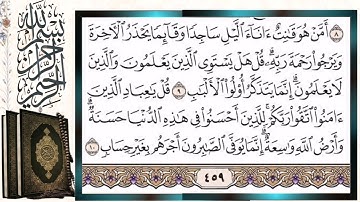 بسم الله الرحمن الرحيم
٨ أَمَّنْ هُوَ قَٰنِتٌ ءَانَآءَ ٱلَّيْلِ سَاجِدًا وَقَآئِمًا يَحْذَرُ ٱلْءَاخِرَةَ
وَيَرْجُوا۟ رَحْمَةَ رَبِّهِۦ ۗ قُلْ هَلْ يَسْتَوِى ٱلَّذِينَ يَعْلَمُونَ وَٱلَّذِينَ
لَا يَعْلَمُونَ ۗ إِنَّمَا يَتَذَكَّرُ أُو۟لُوا۟ ٱلْأَلْبَٰبِ ٩ قُلْ يَٰعِبَادِ ٱلَّذِينَ
ءَامَنُوا۟ ٱتَّقُوا۟ رَبَّكُمْ ۚ لِلَّذِينَ أَحْسَنُوا۟ فِى هَٰذِهِ ٱلدُّنْيَا حَسَنَةٌ ۗ
وَأَرْضُ ٱللَّهِ وَٰسِعَةٌ ۗ إِنَّمَا يُوَفَّى ٱلصَّٰبِرُونَ أَجْرَهُم بِغَيْرِ حِسَابٍ ١٠
٤٥٩